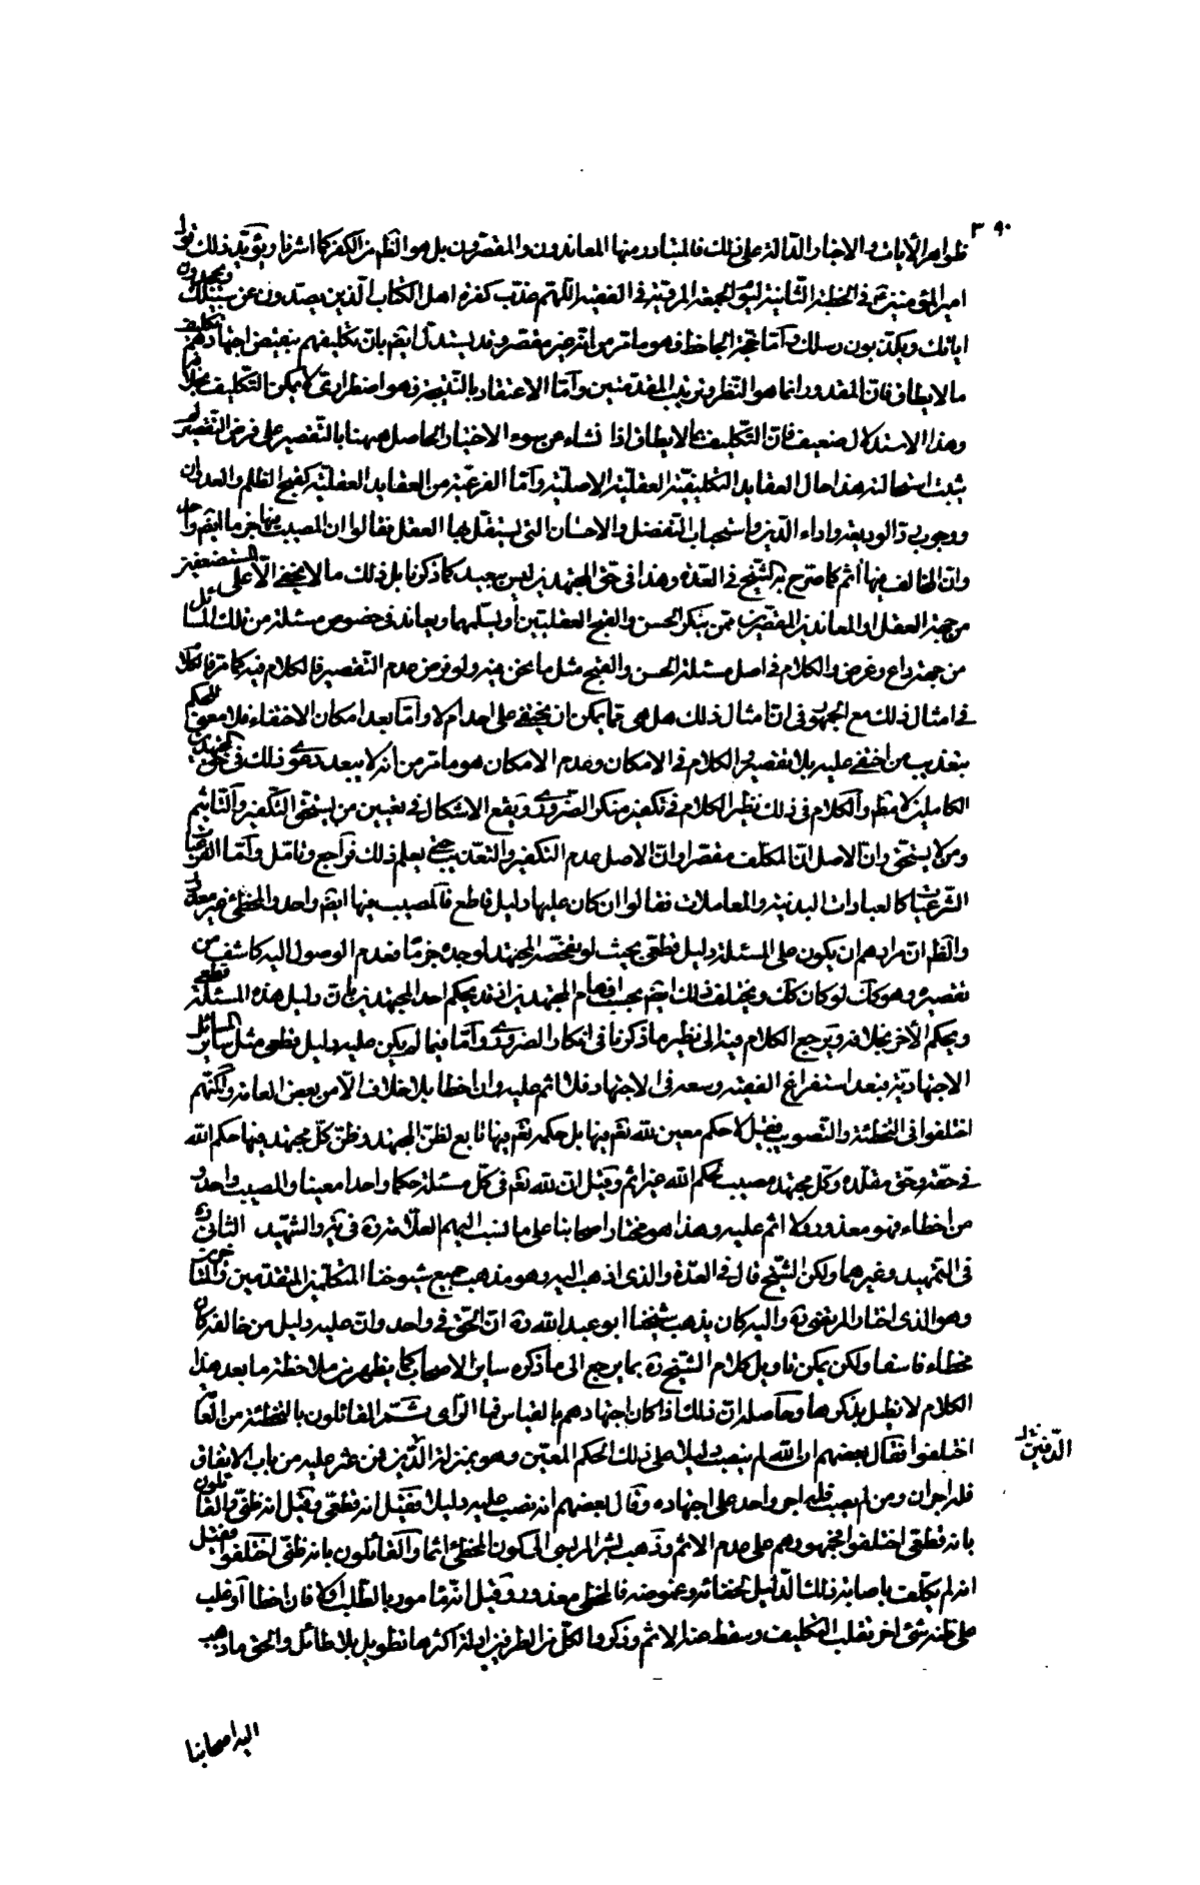 ٣٩٠
ظواهر الآيات والاخبار الدّالة على ذلك فالمتبادر منها المعاندون والمقصّرون بل هو الظّم من الكفر كما اشرنا ويؤيّد ذلك قول
امير المؤمنين ع في الخطبة الثّانية ليوم الجمعة المرويّة في الفقيه اللّهم عذّب كفرة اهل الكتاب الّذين يصدّون عن سبيلك ويجحدون
اياتك ويكذّبون رسلك وامّا حجّة الجاحظ فهو ما مرّ من انّه غير مقصّر وقد يستدلّ ايضم بانّ تكليفهم بنقيض اجتهادهم تكليف
ما لا يطاق فانّ المقدور انما هو النّظر وترتيب المقدمتين وامّا الاعتقاد بالنّتيجة فهو اضطراريّ لا يمكن التّكليف بخلافها
وهذا الاستدلال ضعيف فانّ التّكليف بما لا يطاق اذا نشاء عن سوء الاختيار الحاصل ههنا بالتّقصير على فرض التّقصير لم
يثبت استحالته هذا حال العقايد التكليفيّة العقليّة الاصليّة وامّا الفرعيّة من العقايد العقليّة كقبح الظلم والعدوان
ووجوب ردّ الوديعة واداء الدّين واستحباب التّفضل والاحسان التي يستقلّ بها العقل فقالوا ان المصيب منها جزما ايضم واحد
وانّ المخالف فيها آثم كما صرّح به الشّيخ في العدّة وهذا في حقّ المجتهدين ليس ببعيد كما ذكرنا بل ذلك ما لا يخفى الّا على المستضعفين
من جهة العقل او المعاندين المقصّرين ممّن ينكر الحسن والقبح العقليّين أو يسلّمهما ويعاند في خصوص مسئلة من تلك المسائل
من جهة داع وغرض والكلام في اصل مسئلة الحسن والقبح مثل ما نحن فيه ولو فرض عدم التّقصير فالكلام فيه كما مرّ فالكلام
في امثال ذلك مع الجمهور في انّ امثال ذلك هل هي ممّا يمكن ان يخفى على احد ام لا وامّا بعد امكان الاختفاء فلا معنى للحكم
بتعذيب من اختفى عليه بلا تقصير والكلام في الامكان وعدم الامكان هو ما مرّ من انّه لا يبعد دعوى ذلك في حقّ المجتهدين
الكاملين لا مظم والكلام في ذلك نظير الكلام في تكفير منكر الضّروري ويقع الاشكال في تعيين من يستحقّ التّكفير والتّاثيم
ومن لا يستحقّ وانّ الاصل انّ المكلّف مقصّر او انّ الاصل عدم التكفير والتّعذيب حتّى يعلم ذلك فراجع وتامّل وامّا الفرعيّات
الشّرعيّات كالعبادات البدنيّة والمعاملات فقالوا ان كان عليها دليل قاطع فالمصيب فيها ايضم واحد والمخطئ غير معذور
والظّم انّ مرادهم ان يكون على المسئلة دليل قطعيّ بحيث لو تفحّصه المجتهد لوجده جزمًا فعدم الوصول اليه كاشف من
تقصيره وهو كك لو كان كك ويختلف ذلك ايضم بحسب افهام المجتهدين اذ قد يحكم احد المجتهدين بانّ دليل هذه المسئلة قطعي
ويحكم الأخر بخلافه ويرجع الكلام فيه الى نظير ما ذكرنا في انكار الضروري وامّا فيما لم يكن عليه دليل قطعي مثل ساير المسائل
الاجتهاديّة فبعد استفراغ الفقيه وسعه في الاجتهاد فلا اثم عليه وان اخطا بلا خلاف الّا من بعض العامة ولكنّهم
اختلفوا في التخطئة والتّصويب فقيل لا حكم معين لله تعم فيها بل حكمه تعم فيها تابع لظنّ المجتهد وظنّ كلّ مجتهد فيها حكم الله
في حقّه وحقّ مقلّده وكلّ مجتهد مصيب لحكم الله غير اثم وقيل انّ لله تعم في كلّ مسئلة حكما واحدا معينا والمصيب واحد و
من اخطاء فهو معذور ولا اثم عليه وهذا هو مختار اصحابنا على ما نسب اليهم العلّامة ره في يه والشهيد الثاني ره
في التمهيد وغيرهما ولكن الشّيخ قال في العدّة والذى اذهب اليه وهو مذهب جميع شيوخنا المتكلّمين المتقدّمين والمتاخرين
وهو الذى اختاره المرتضى ره واليه كان يذهب شيخنا ابو عبد الله ره انّ الحقّ في واحد وانّ عليه دليل من خالفه كان
مخطاء فاسقا ولكن يمكن تاويل كلام الشّيخ ره بما يرجع الى ما ذكره ساير الاصحاب كما يظهر من ملاحظة ما بعد هذا
الكلام لا نطيل بذكرها وحاصله انّ ذلك اذا كان اجتهادهم بالقياس والرّأى ثمّ القائلون بالتخطئة من العامّة
اختلفوا فقال بعضهم ان الله لم ينصب دليلا على ذلك الحكم المعيّن وهو بمنزلة الدّفين فمن عثر عليه من باب الاتفاق
الدّفين
فله اجران ومن لم يصب فله اجر واحد على اجتهاده وقال بعضهم انه نصب عليه دليلا فقيل انه قطعيّ وقيل انه ظنّيّ والقائلون
بانه قطعيّ اختلفوا فجمهورهم على عدم الاثم وذهب بشر المريسي الى كون المخطئ اثما والقائلون بانه ظنّيّ اختلفوا فقيل
انه لم يكلّف باصابة ذلك الدّليل لخفائه وغموضه فالمخطى معذور وقيل انّه مامور بالطّلب اولا فان اخطا او غلب
على ظنه شئ اخر تقلب التكليف وسقط عنه الاثم وذكروا لكلّ من الطرفين ادلة اكثرها تطويل بلا طائل والحق ما ذهب
اليه اصحابنا